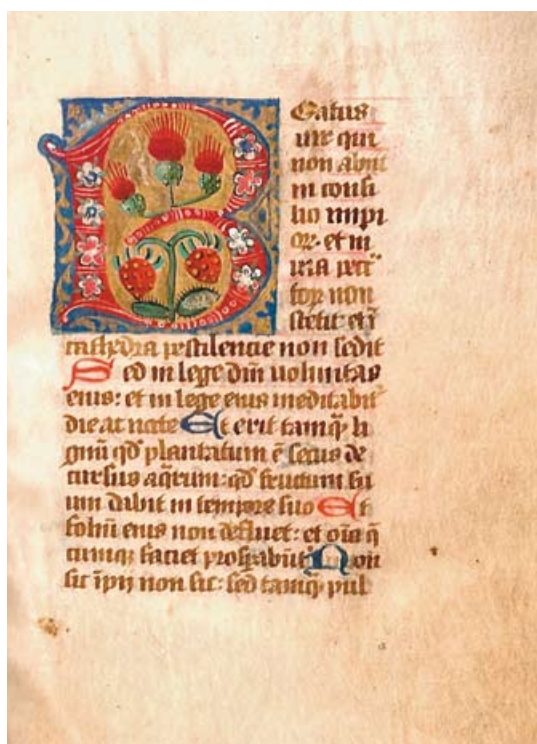 Beatus
uir qui
non abiit
in consi
lio impi
oꝝ· et in
uia pecc̄
toꝝ non
stetit et ī
cathedra pestilencie non sedit
Sed in lege dn̄i uoluntas
eius: et in lege eius meditabit᷑
die ac nocte Et erit tamq̄ li
gnū qd̄ plantatum ē secus de
cursus aq̄rum: qd̄ fructum su
um dabit in tempore suo Et
foliū eius non defluet: et oīa q̄
cumqꝫ faciet prosꝑabūt᷑ Non
sic īpij non sic: sed tamq̄ pul